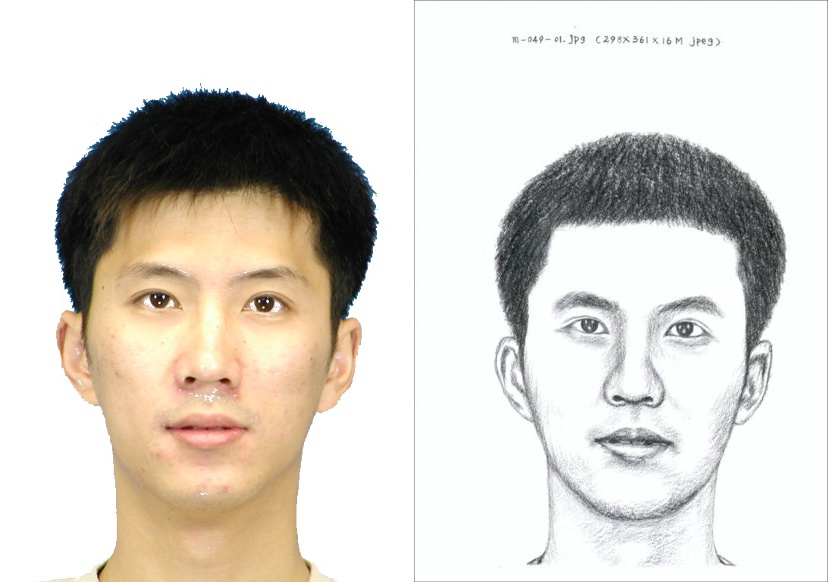 m-049-01.jpg (298×361×16M jpeg)